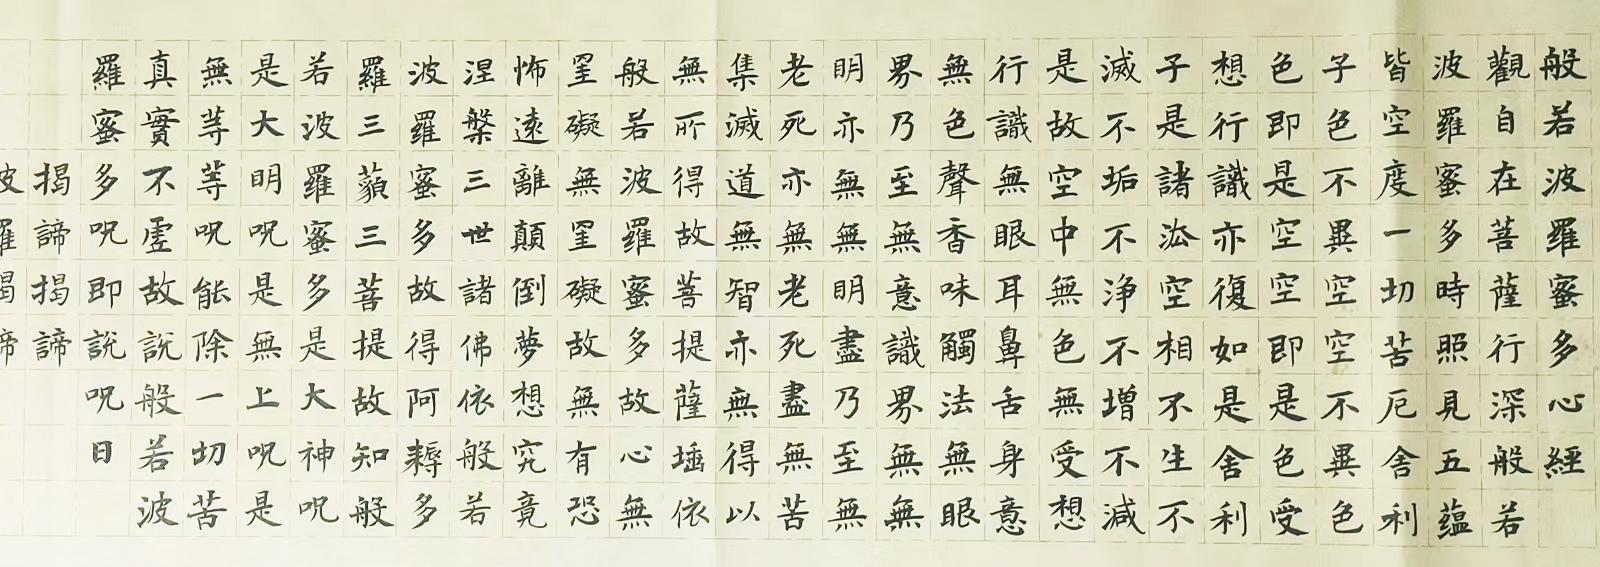 般若波羅蜜多心經
觀自在菩薩行深般若
波羅蜜多時照見五蘊
皆空度一切苦厄舍利
子色不異空空不異色
色即是空空即是色受
想行識亦復如是舍利
子是諸法空相不生不
滅不垢不淨不增不減
是故空中無色無受想
行識無眼耳鼻舌身意
無色聲香味觸法無眼
界乃至無意識界無無
明亦無無明盡乃至無
老死亦無老死盡無苦
集滅道無智亦無得以
無所得故菩提薩埵依
般若波羅蜜多故心無
罣礙無罣礙故無有恐
怖遠離顛倒夢想究竟
涅槃三世諸佛依般若
波羅蜜多故得阿耨多
羅三藐三菩提故知般
若波羅蜜多是大神呪
是大明呪是無上呪是
無等等呪能除一切苦
真實不虛故說般若波
羅蜜多呪即說呪曰
揭諦揭諦
波羅揭諦